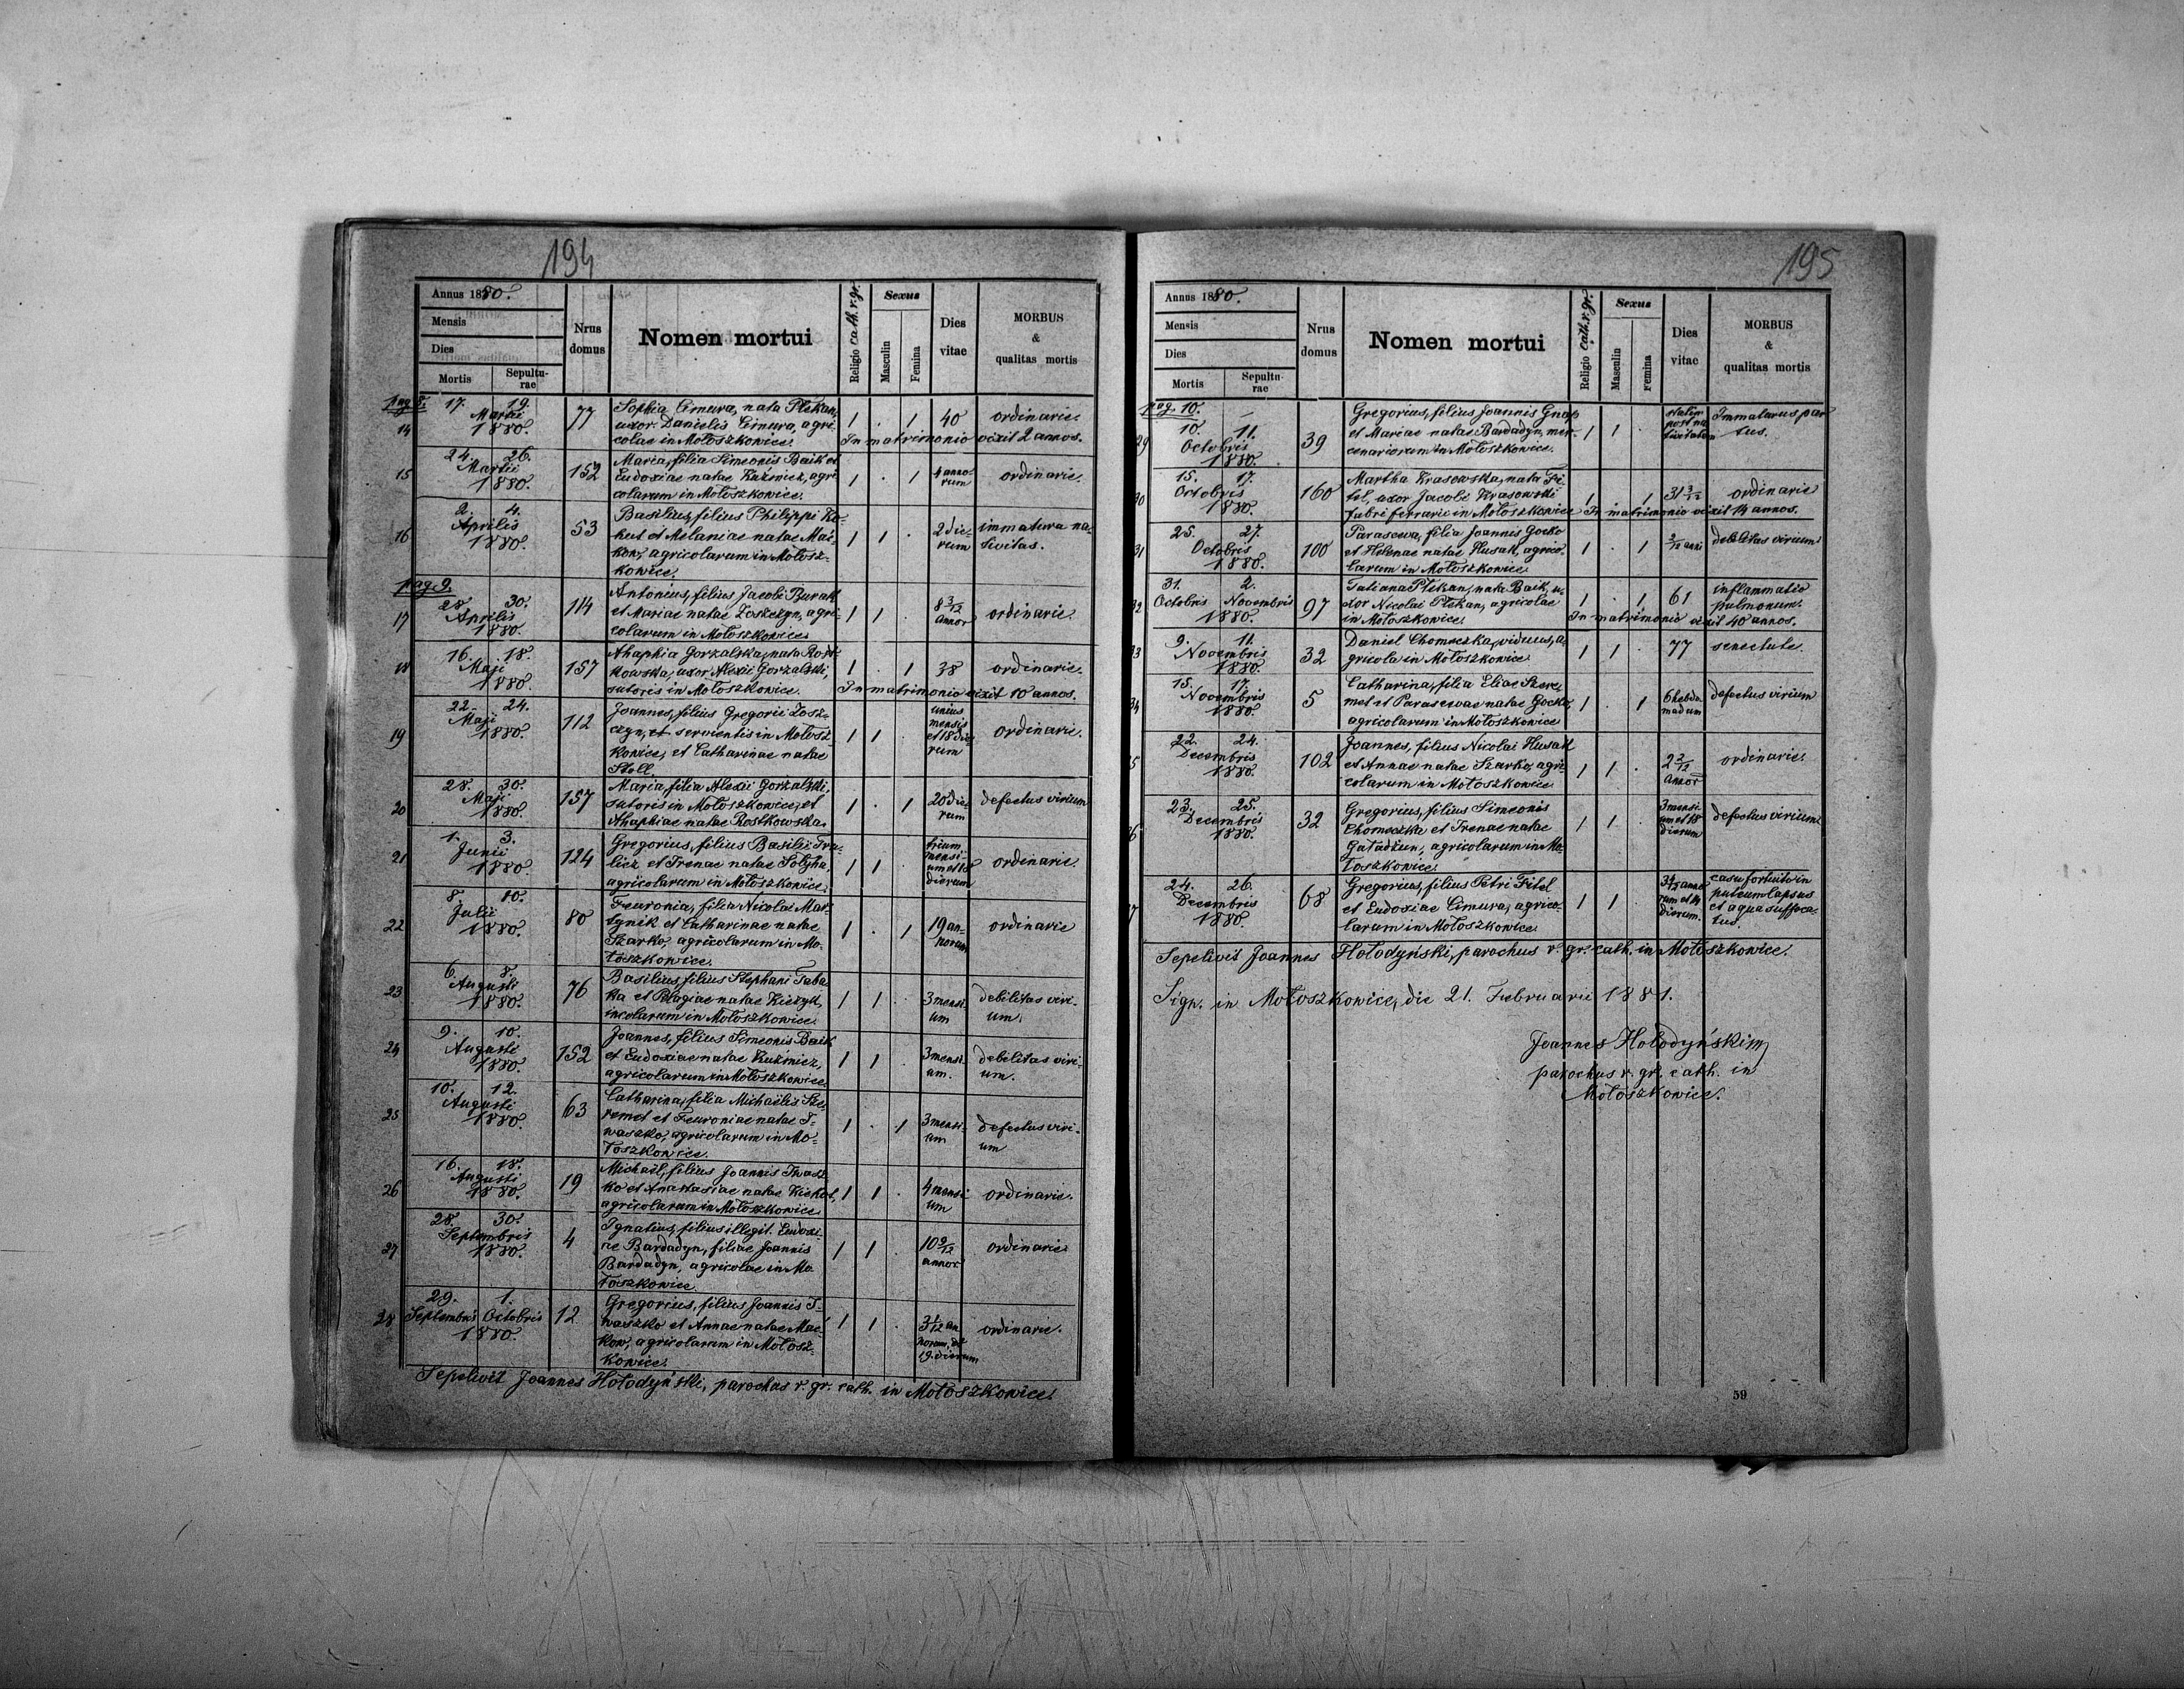 194
Annus 1880.
Mensis
Dies
Mortis
Sepultu-
rae
Nrus
domus
Nomen mortui
Religio cath. r. gr.
Sexus
Masculin
Femina
Dies
vitae
MORBUS
&
qualitas mortis
pag 8.
14
17. 19.
Martii
1880.
77
Sophia Cimura, nata Plekan,
uxor Danielis Cimura, agri-
colae in Mołoszkowice.
1 . 1
40
ordinarie
In matrimonio vixit 2 annos.
15
24. 26.
Martii
1880.
152
Maria, filia Simeonis Baik et
Eudoxiae natae Kuźmicz, agri
colarum in Mołoszkowice.
1 . 1
4 anno-
rum
ordinarie.
16
2. 4.
Aprilis
1880.
53
Basilius, filius Philippi Ko-
kut et Melaniae natae Mać-
kow, agricolarum in Mołosz-
kowice.
1 1 .
2 die-
rum
immatura na-
tivitas.
pag 9.
17
28. 30.
Aprilis
1880.
114
Antonius, filius Jacobi Burak
et Mariae natae Łoszczyn, agri-
colarum in Mołoszkowice
1 1 .
8 3/12
annor
ordinarie
18
16. 18.
Maji
1880.
157
Ahaphia Gorzalska, nata Rost-
kowska, uxor Alexii Gorzalski,
sutoris in Mołoszkowice.
1 . 1
38
ordinarie.
In matrimonio vixit 10 annos.
19
22. 24.
Maji
1880.
112
Joannes, filius Gregorii Łosz-
czyn, et servientis in Mołosz
kowice, et Catharinae natae
Stoll.
1 1 .
unius
mensis
et 18 die-
rum
ordinarie.
20
28. 30.
Maji
1880.
157
Maria, filia Alexii Gorzalski,
sutoris in Mołoszkowice, et
Ahaphiae natae Rostkowska.
1 . 1
20 die
rum
defectus virium
21
1. 3.
Junii
1880.
124
Gregorius, filius Basilii
et Irenae natae Sołyha,
agricolarum in Mołoszkowice.
1 1 .
trium
mensi-
um et 10
dierum
ordinarie.
22
8. 10.
Julii
1880.
80
Feuronia, filia Nicolai Mar-
tynik et Catharinae natae
Szarko, agricolarum in Mo-
łoszkowice.
1 . 1
19 an-
norum
ordinarie
23
6. 8.
Augusti
1880.
76
Basilius, filius Stephani Taba-
ka et Pelagiae natae Kiczyk,
incolarum in Mołoszkowice.
1 1 .
3 mensi-
um
debilitas viri-
um.
24
9. 10.
Augusti
1880.
152
Joannes, filius Simeonis Baik
et Eudoxiae natae Kuźmicz,
agricolarum in Mołoszkowice.
1 1 .
3 mensi-
um.
debilitas viri-
um.
25
10. 12.
Augusti
1880.
63
Catharina, filia Michaëlis Sze-
remet et Feuroniae natae I-
waszko, agricolarum in Mo-
łoszkowice.
1 . 1
3 mensi-
um
defectus viri-
um
26
16. 18.
Augusti
1880.
19
Michaël, filius Joannis Iwasz
ko et Anastasiae natae Kiekot,
agricolarum in Mołoszkowice
1 1 .
4 mensi
um
ordinarie.
27
28. 30.
Septembris
1880.
4
Ignatius, filius illegit. Eudoxi-
ae Bardadyn, filiae Joannis
Bardadyn, agricolae in Mo
łoszkowice.
1 1 .
10 9/12
annor
ordinarie
28
29. 1.
Septembris Octobris
1880.
12
Gregorius, filius Joannis I-
waszko et Annae natae Mać-
kow, agricolarum in Mołosz-
kowice.
1 1 .
3 1/12 an
norum, et
19. dierum
ordinarie.
Sepelivit Joannes Hołodyński, parochus r. gr. cath. in Mołoszkowice.
195
Annus 1880.
Mensis
Dies
Mortis
Sepultu-
rae
Nrus
domus
Nomen mortui
Religio cath. r. gr.
Sexus
Masculin
Femina
Dies
vitae
MORBUS
&
qualitas mortis
pag. 10.
29
10. 11.
Octobris
1880.
39
Gregorius, filius Joannis Gnap
et Mariae natae Bardadyn, mer-
cenariorum in Mołoszkowice.
1 1 .
statim
post na
tivitatem
Immaturus par
tus.
30
15. 17.
Octobris
1880.
160
Martha Krasowska, nata Fi-
tel, uxor Jacobi Krasowski
fabri ferrarii in Mołoszkowice
1 . 1
31 3/12
ordinarie
In matrimonio vixit 14 annos.
31
25. 27.
Octobris
1880.
100
Parascewa, filia Joannis Gocko
et Helenae natae Husak, agrico-
larum in Mołoszkowice
1 . 1
2/12 anni
debilitas virium
32
31. 2.
Octobris Novembris
1880.
97
Tatiana Plekan, nata Baik, u-
xor Nicolai Plekan, agricolae
in Mołoszkowice.
1 . 1
61
inflammatio
pulmonum.
In matrimonio vixit 40 annos.
33
9. 11.
Novembris
1880.
32
Daniel Chomeczka, viduus, a-
gricola in Mołoszkowice
1 1 .
77
senectute.
34
15. 17.
Novembris
1880.
5
Catharina, filia Eliae Szere-
met et Parascewae natae Gocko,
agricolarum in Mołoszkowice
1 . 1
6 hebdo-
madum
defectus virium
35
22. 24.
Decembris
1880.
102
Joannes, filius Nicolai Husak
et Annae natae Szarko, agri-
colarum in Mołoszkowice
1 1 .
2 2/12
annor
ordinarie.
36
23. 25.
Decembris
1880.
32
Gregorius, filius Simeonis
Chomeczka et Irenae natae
Gaładżun, agricolarum in Mo-
łoszkowice.
1 1 .
3 mensi-
um et 18
dierum
defectus virium.
37
24. 26.
Decembris
1880.
68
Gregorius, filius Petri Fitel
et Eudoxiae Cimura, agrico-
larum in Mołoszkowice.
1 1 .
3 4/12 anno
rum et 14
dierum.
casu fortuito in
puteum lapsus
et aqua suffoca-
tus.
Sepelivit Joannes Hołodyński, parochus r. gr. cath. in Mołoszkowice.
Sign. in Mołoszkowice, die 21. Februarii 1881.
Joannes Hołodyński
parochus r. gr. cath. in
Mołoszkowice.
59